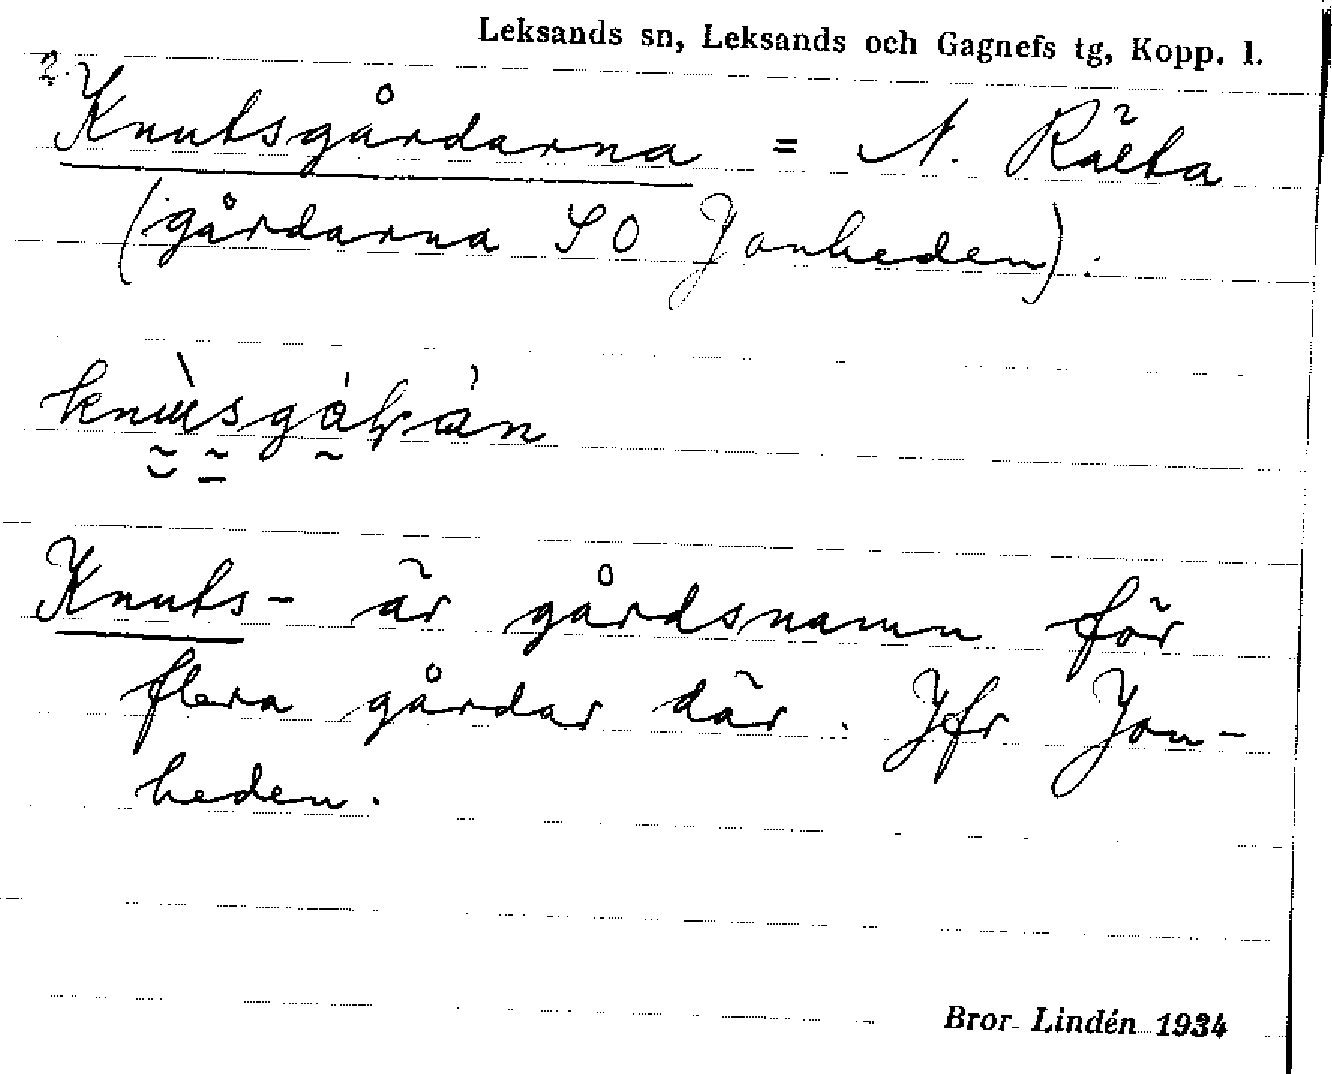 Leksands sn, Leksands och Gagnefs tg, Kopp. l.
2. Knutsgårdarna = N. Rälta
(gårdarna SO Jonheden).
Knuts- är gårdsnamn för
flera gårdar där. Jfr Jon-
heden.
Bror Lindén 1934